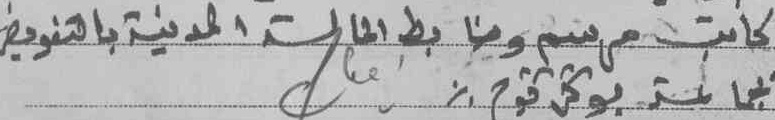 كاتب مرسم وضابط الحالة المدنية بالتفويض
بجماعة بوكرقوح